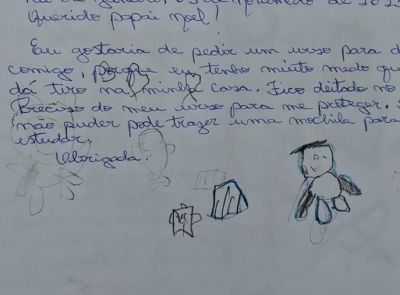 de 202
Querido papai noel!
Eu gostaria de pedir um urso para d
comigo, porque eu tenho muito medo qu
dá tiro na minha casa. Fico deitado no
Preciso do meu urso para me proteger.
não puder pode trazer uma mochila para
estudar.
Obrigada.